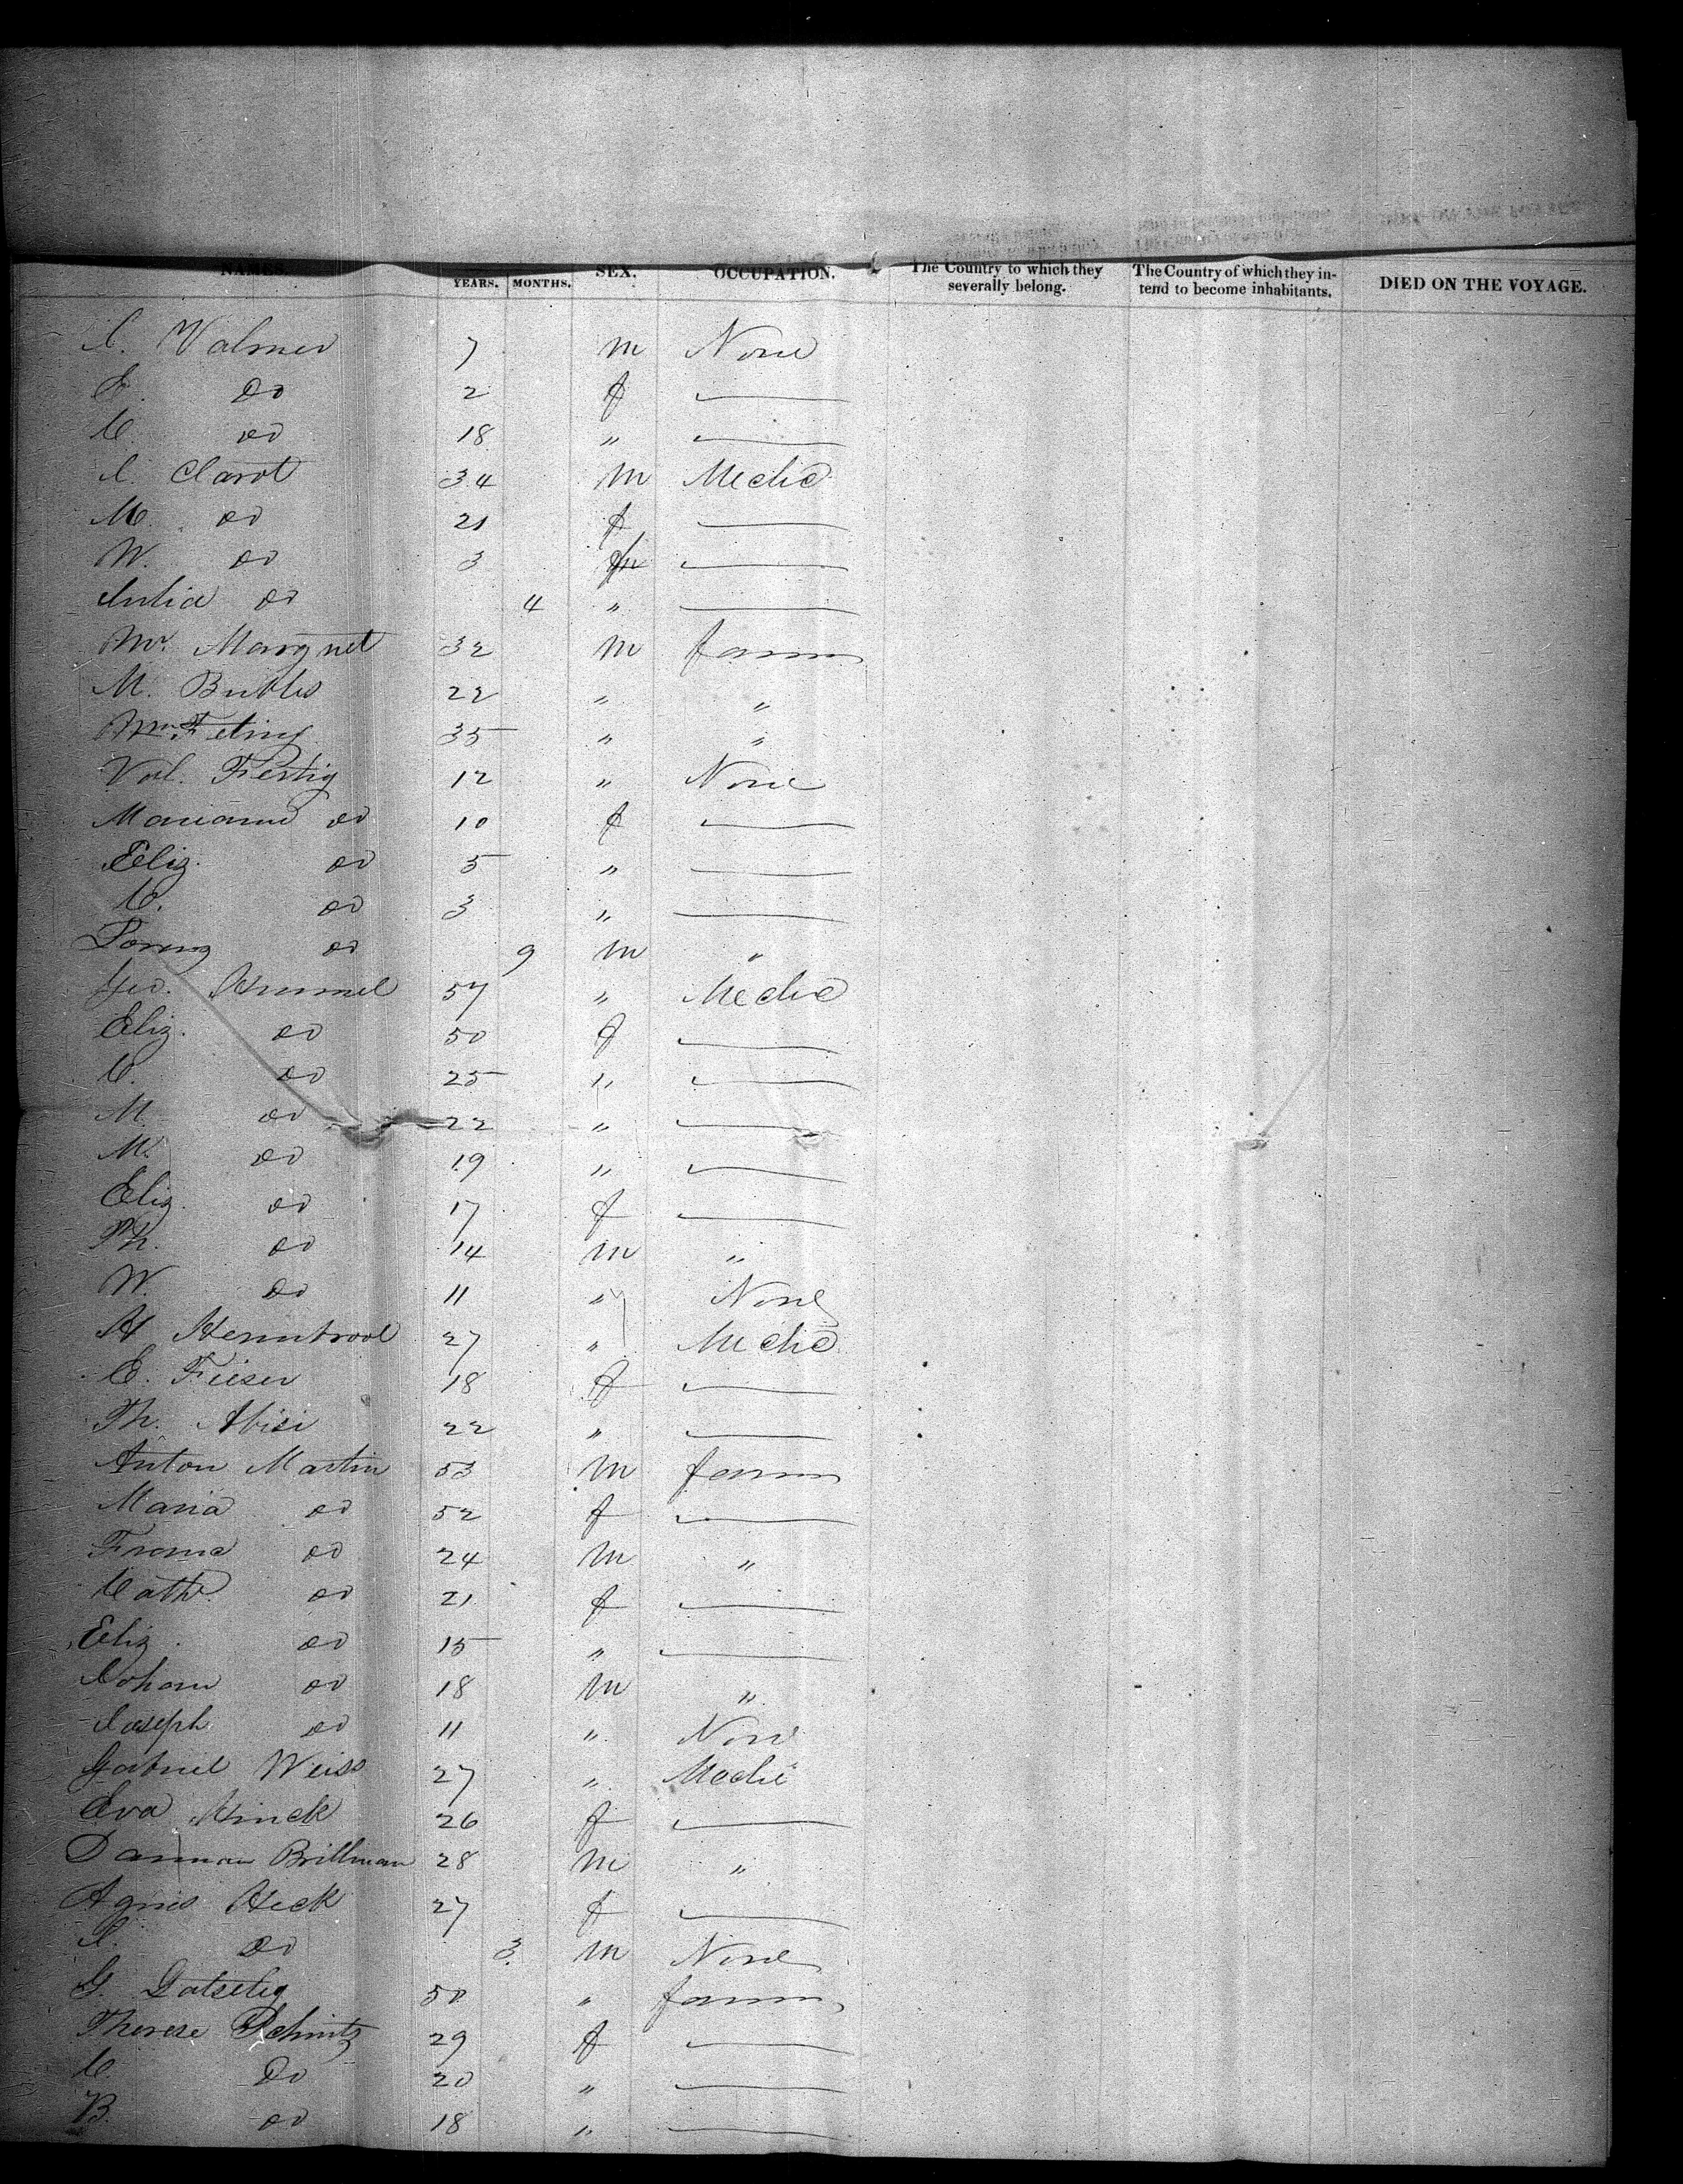 NAMES. YEARS. MONTHS. SEX. OCCUPATION. The Country to which they severally belong. The Country of which they intend to become inhabitants. DIED ON THE VOYAGE.
Valmer 7 m None
Do 2 f
C. do 18 "
Clarot 34 m Mechc
M. do 21 f
W. do 3 m
Julia do 4 "
Mr. Margnet 32 m farmer
M. 22 " "
35 " "
Val. Fertig 12 " None
Mariann do 10 f
Eliz. do 5 "
C. do 3 "
Lorenz do 9 m "
Geo. Hummel 57 " Mechc
Eliz. do 50 f
C. do 25 "
M. do 22 "
M. do 19 "
Eliz. do 17 f
Ph. do 14 m "
W. do 11 " None
H 27 " Mechc
C. Fieser 18 f
Th. 22 "
Anton Martin 53 m farmer
Maria do 52 f
Franz do 24 m "
Cath. do 21 f
Eliz. do 15 "
Johann do 18 m "
Joseph do 11 " None
Gabriel Weiss 27 " Mechc
Eva Hinck 26 f
Brillman 28 m "
Agnes Heck 27 f
Do 3 m None
G. 50 " farmer
Therese Schmitz 29 f
C. Do 20 "
B. do 18 "